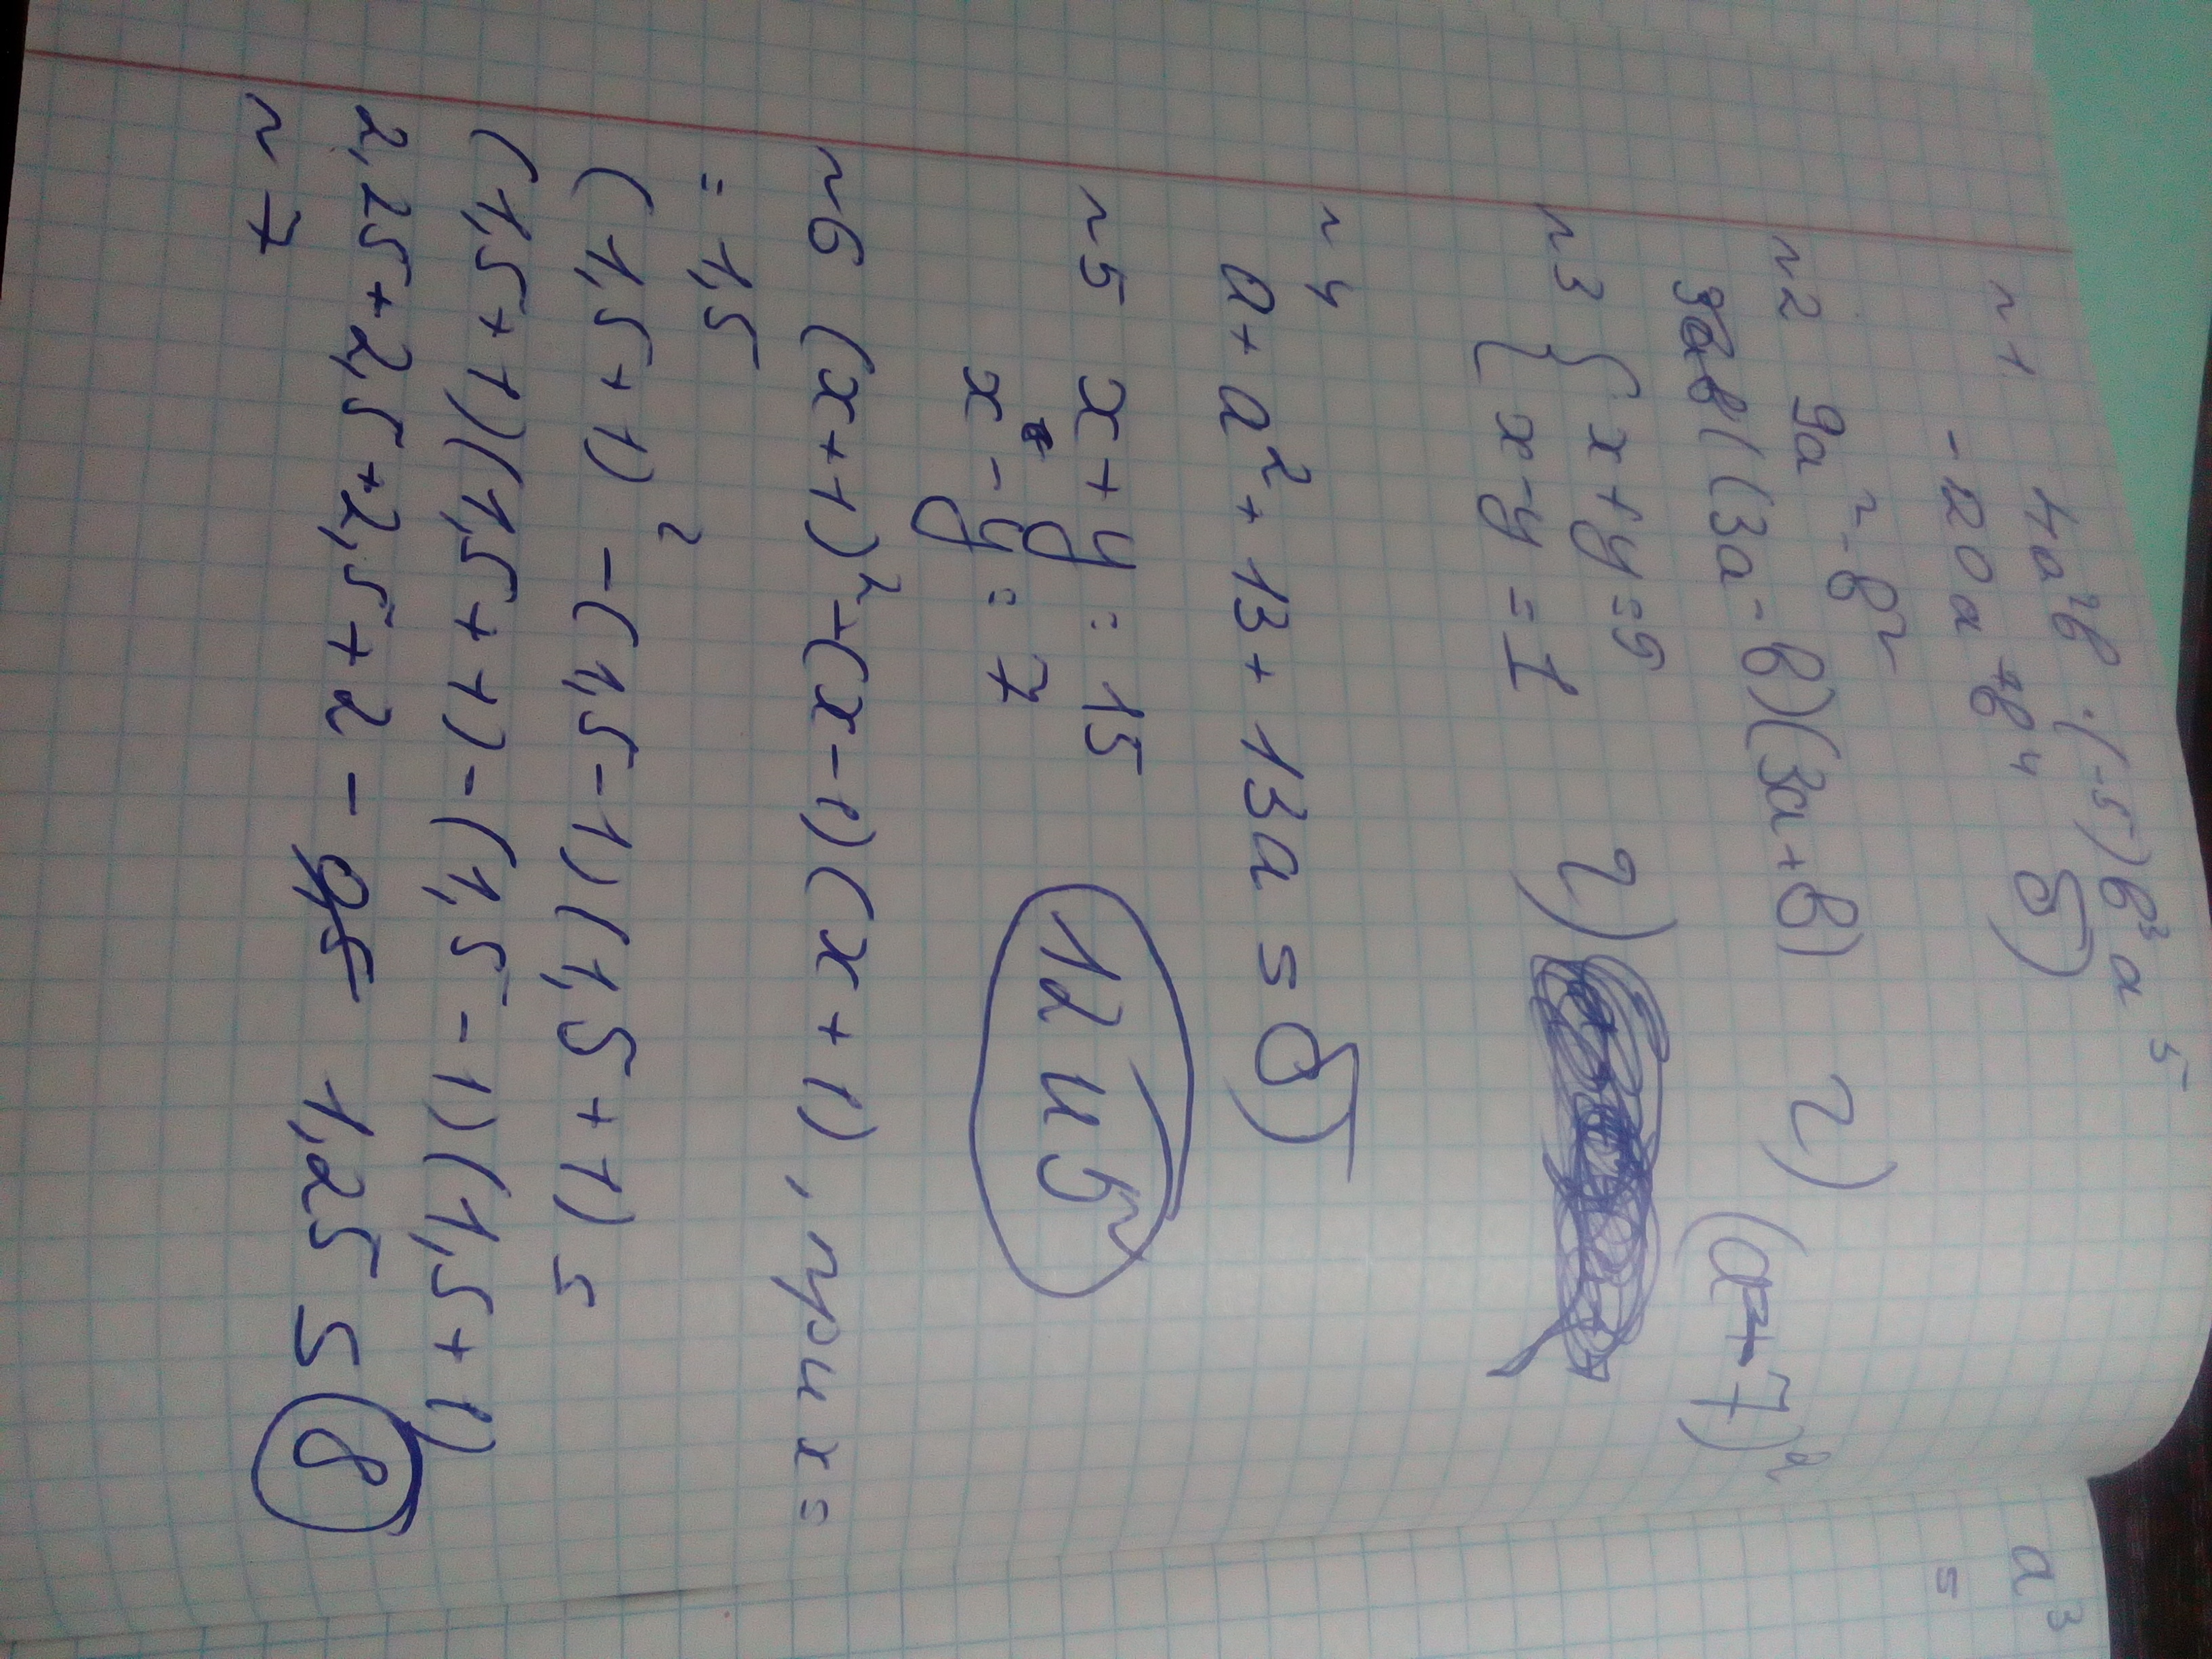 №1 4a²в · (-5)в³a⁵
-20a⁷в⁴ б)
№2 9a²-в²
(3a-в)(3a+в) г) (a+7)²
№3 { x+y=9
x-y=1 г)
№4
a+a²+13+13a = б
№5 x+y=15
x-y=7 12 и 5
№6 (x+1)²-(x-1)(x+1), при x=
=1,5
(1,5+1)²-(1,5-1)(1,5+1)=
(1,5+1)(1,5+1)-(1,5-1)(1,5+1)
2,25+2,5+2,5+2- 1,25 = 8
№7
a³
=